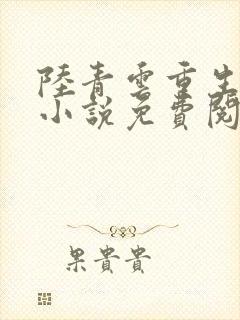 陸青雲重生
小說免費閱
果貴貴